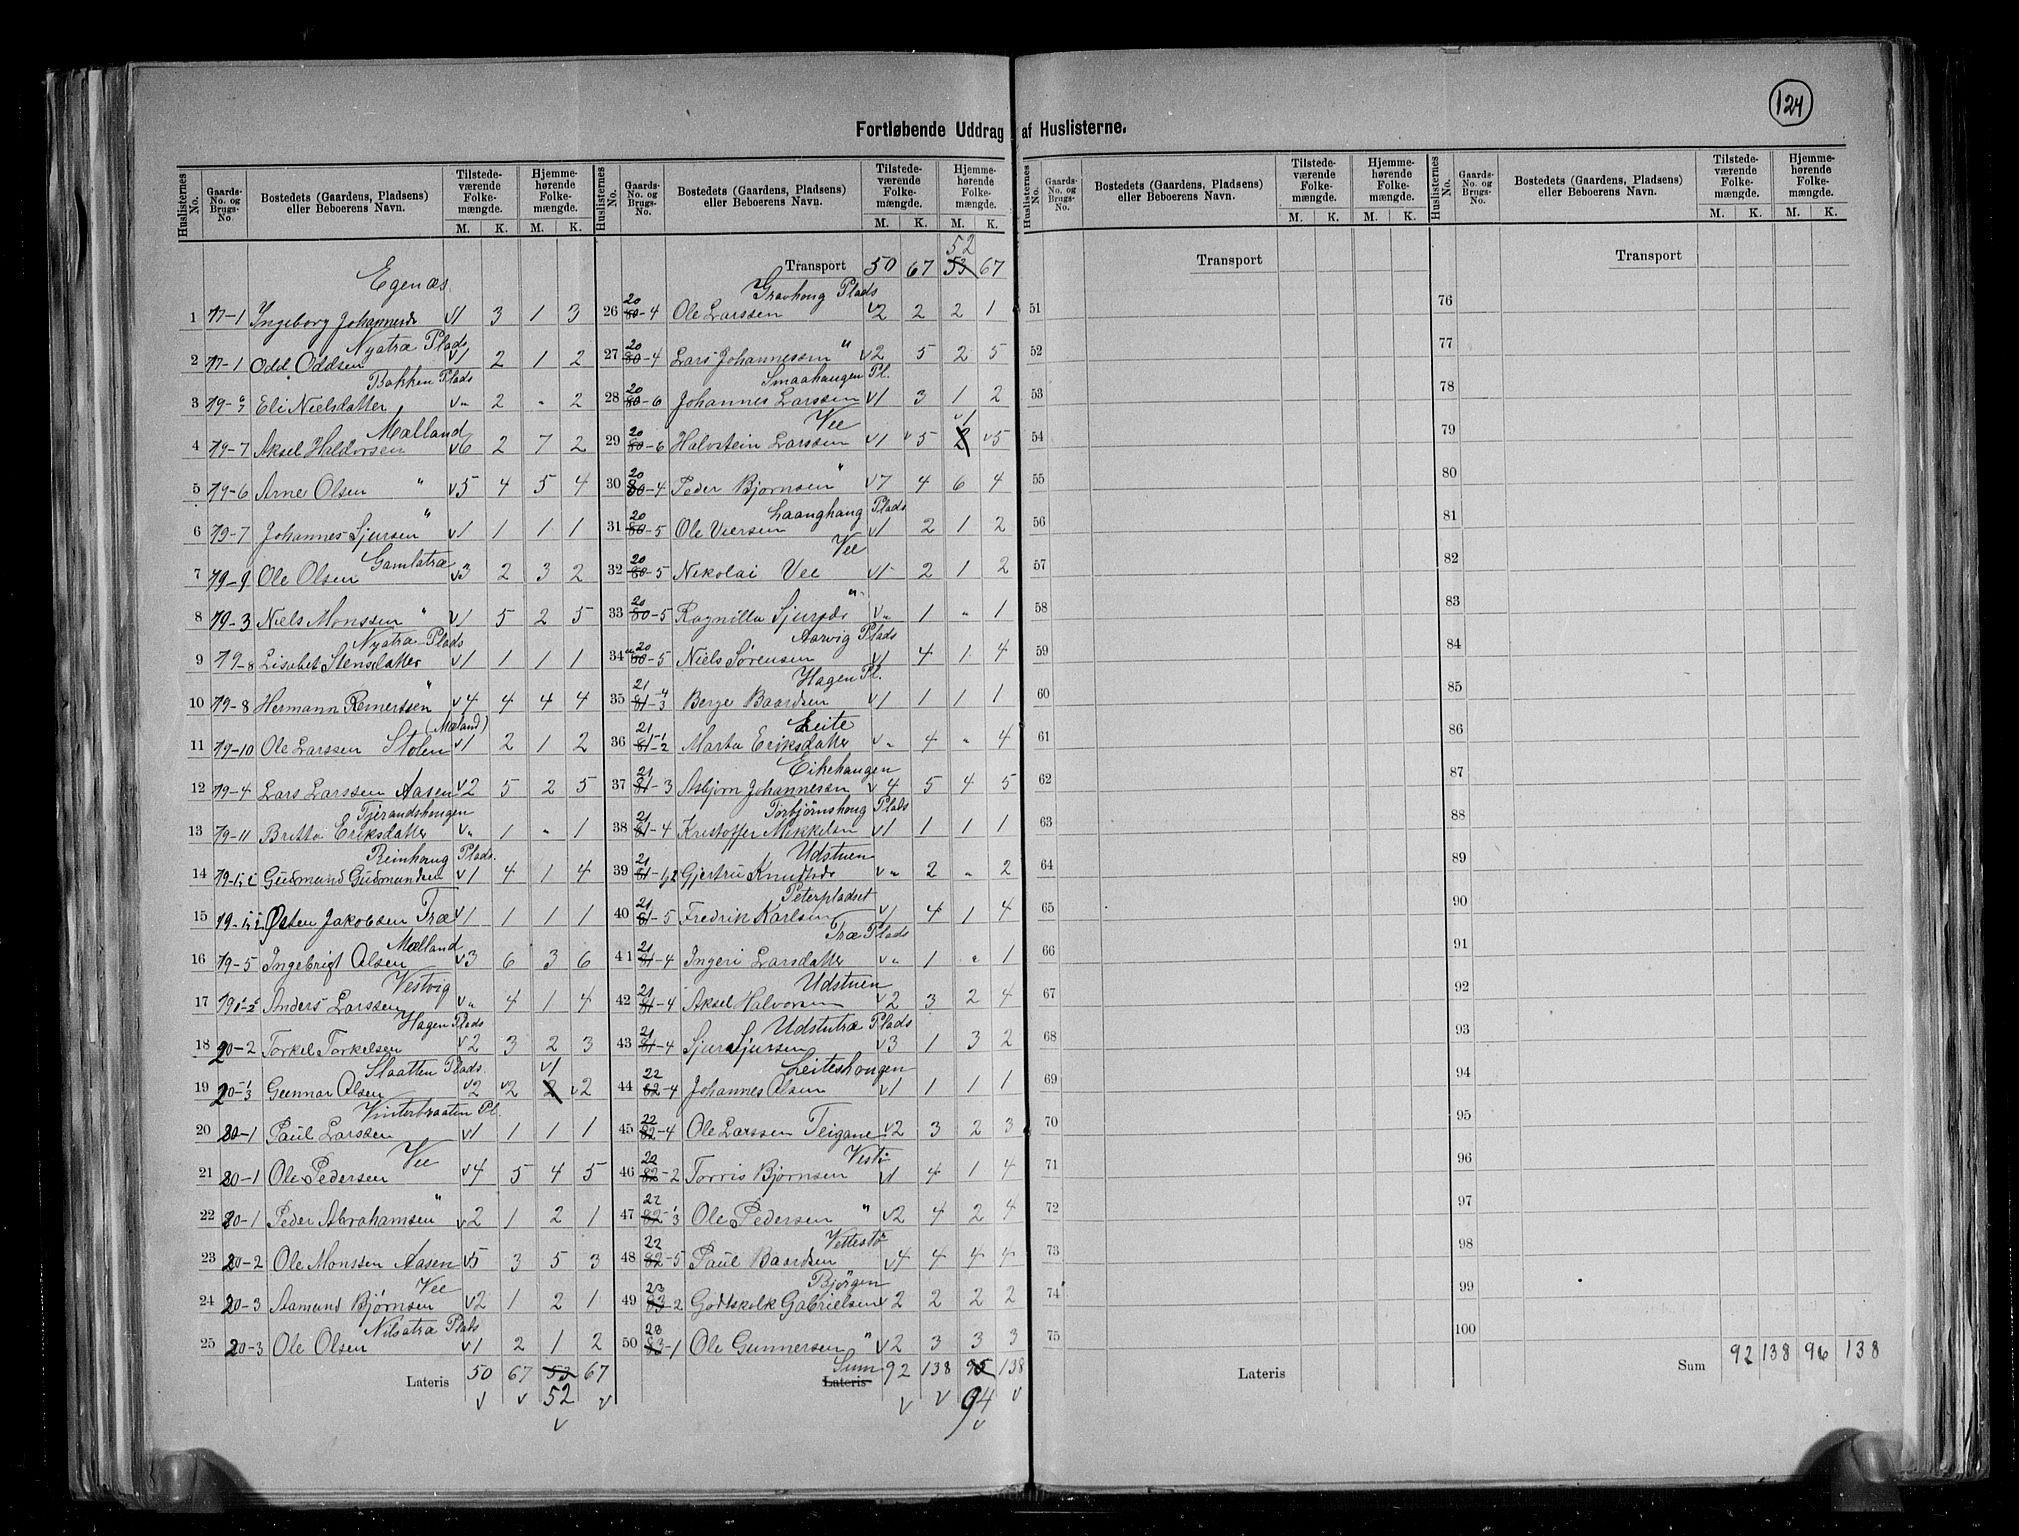 124
Fortløbende Uddrag af Huslisterne.
Huslisternes No. | Gaards-No. og Brugs-No. | Bostedets (Gaardens, Pladsens) eller Beboerens Navn. | Tilstede-værende Folke-mængde. M. K. | Hjemme-hørende Folke-mængde. M. K.
Egenæs
1 77-1 Ingeborg Johannesd. v1 3 1 3
Nyatræ Plads
2 77-1 Odd Oddsen v1 2 1 2
Bakken Plads
3 79-6/7 Eli Nielsdatter v" 2 " 2
Mælland
4 79-7 Aksel Haldorsen v6 2 7 2
5 79-6 Arne Olsen " v5 4 5 4
6 79-7 Johannes Sjursen " v1 1 1 1
Gamlatræ
7 79-9 Ole Olsen v3 2 3 2
8 79-3 Niels Monssen " v1 5 2 5
Nyatræ Plads
9 79-8 Lisabet Stensdatter v1 1 1 1
10 79-8 Hermann Reinertsen " v4 4 4 4
(Mæland)
11 79-10 Ole Larssen Stolen v1 2 1 2
12 79-4 Lars Larssen Aasen v2 5 2 5
Tjerandshougen
13 79-11 Britta Eriksdatter v" 1 " 1
Reinhoug Plads.
14 79-1 Gudmund Gudmundsen v1 4 1 4
15 79-1 Østen Jakobsen Træ v1 1 1 1
Mælland
16 79-5 Ingebrigt Olsen v3 6 3 6
Vestvig
17 79-2 Anders Larssen v" 4 1 4
Hagen Plads
18 20-2 Torkel Torkelsen v2 3 2 3
Slaatten Plads v1
19 20-1/3 Gunnar Olsen v2 v2 2 v2
Vinterbraaten Pl.
20 20-1 Paul Larssen v1 1 1 1
Vee
21 20-1 Ole Pedersen v4 5 4 5
22 20-1 Peder Abrahamsen " v2 1 2 1
23 20-2 Ole Monssen Aasen v5 3 5 3
Vee
24 20-3 Aamund Bjørnsen v2 1 2 1
Nilsatræ Plads
25 20-3 Ole Olsen v1 2 1 2
Lateris 50 67 53 67
v v 52 v
v
Huslisternes No. | Gaards-No. og Brugs-No. | Bostedets (Gaardens, Pladsens) eller Beboerens Navn. | Tilstede-værende Folke-mængde. M. K. | Hjemme-hørende Folke-mængde. M. K.
52
Transport 50 67 53 67
Gravhoug Plads
26 20 80-4 Ole Larssen v2 2 2 1
27 20 80-4 Lars Johannessen " v2 5 2 5
Smaahaugen Pl.
28 20 80-6 Johannes Larssen v1 3 1 2
Vee v1
29 20 80-6 Halvstein Larssen v1 v5 2 v5
30 20 80-4 Peder Bjørnsen " v7 4 6 4
Laanghaug Plads
31 20 80-5 Ole Viersen v1 2 1 2
Vee
32 20 80-5 Nikolai Vee v1 2 1 2
33 20 80-5 Ragnilla Sjursd. " v" 1 " 1
Aarvig Plads
34 20 80-5 Niels Sørensen v1 4 1 4
Hagen Pl.
35 21 81-4/3 Berge Baardsen v1 1 1 1
Leite
36 21 81-1/2 Marta Eriksdatter v" 4 " 4
Eikehaugen
37 21 81-3 Asbjørn Johannesen v4 5 4 5
Torbjørnshoug Plads
38 21 81-4 Kristoffer Mikkelsen v1 1 1 1
Udstuen
39 21 81-1,2 Gjertru Knudtsd. v" 2 " 2
Peterpladset
40 21 81-5 Fredrik Karlsen v1 4 1 4
Træ Plads
41 21 81-4 Ingeri Larsdatter v" 1 " 1
Udstuen
42 21 81-4 Aksel Halvorsen v2 3 2 4
Udstutræ Plads
43 21 81-4 Sjur Sjursen v3 1 3 2
Leiteshougen
44 22 82-4 Johannes Olsen v1 1 1 1
45 22 82-4 Ole Larssen Teigane v2 3 2 3
Vestø
46 22 82-2 Torris Bjørnsen v1 4 1 4
47 22 82-1/3 Ole Pedersen " v2 4 2 4
Vettestø
48 22 82-5 Paul Baardsen v4 4 4 4
Bjørgen
49 23 83-2 Godtskolk Gabrielsen v2 2 2 2
50 23 83-1 Ole Gunnersen " v2 3 3 3
Sum 92 138 95 138
Lateris v v 94 v
v
Huslisternes No. | Gaards-No. og Brugs-No. | Bostedets (Gaardens, Pladsens) eller Beboerens Navn. | Tilstede-værende Folke-mængde. M. K. | Hjemme-hørende Folke-mængde. M. K.
Transport
51
52
53
54
55
56
57
58
59
60
61
62
63
64
65
66
67
68
69
70
71
72
73
74
75
Lateris
Huslisternes No. | Gaards-No. og Brugs-No. | Bostedets (Gaardens, Pladsens) eller Beboerens Navn. | Tilstede-værende Folke-mængde. M. K. | Hjemme-hørende Folke-mængde. M. K.
Transport
76
77
78
79
80
81
82
83
84
85
86
87
88
89
90
91
92
93
94
95
96
97
98
99
100
Sum 92 138 96 138